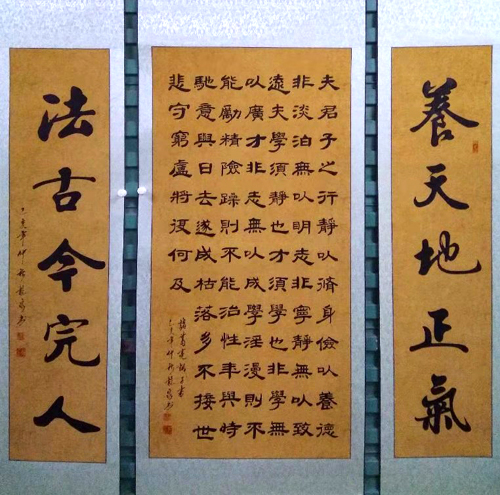 養天地正氣
夫君子之行靜以脩身儉以養德
非淡泊無以明志非寧靜無以致
遠夫學須靜也才須學也非學無
以廣才非志無以成學淫漫則不
能勵精險躁則不能治性年與時
馳意與日去遂成枯落多不接世
悲守窮廬將復何及
諸葛亮誡子書
己亥年仲秋
法古今完人
己亥年仲秋